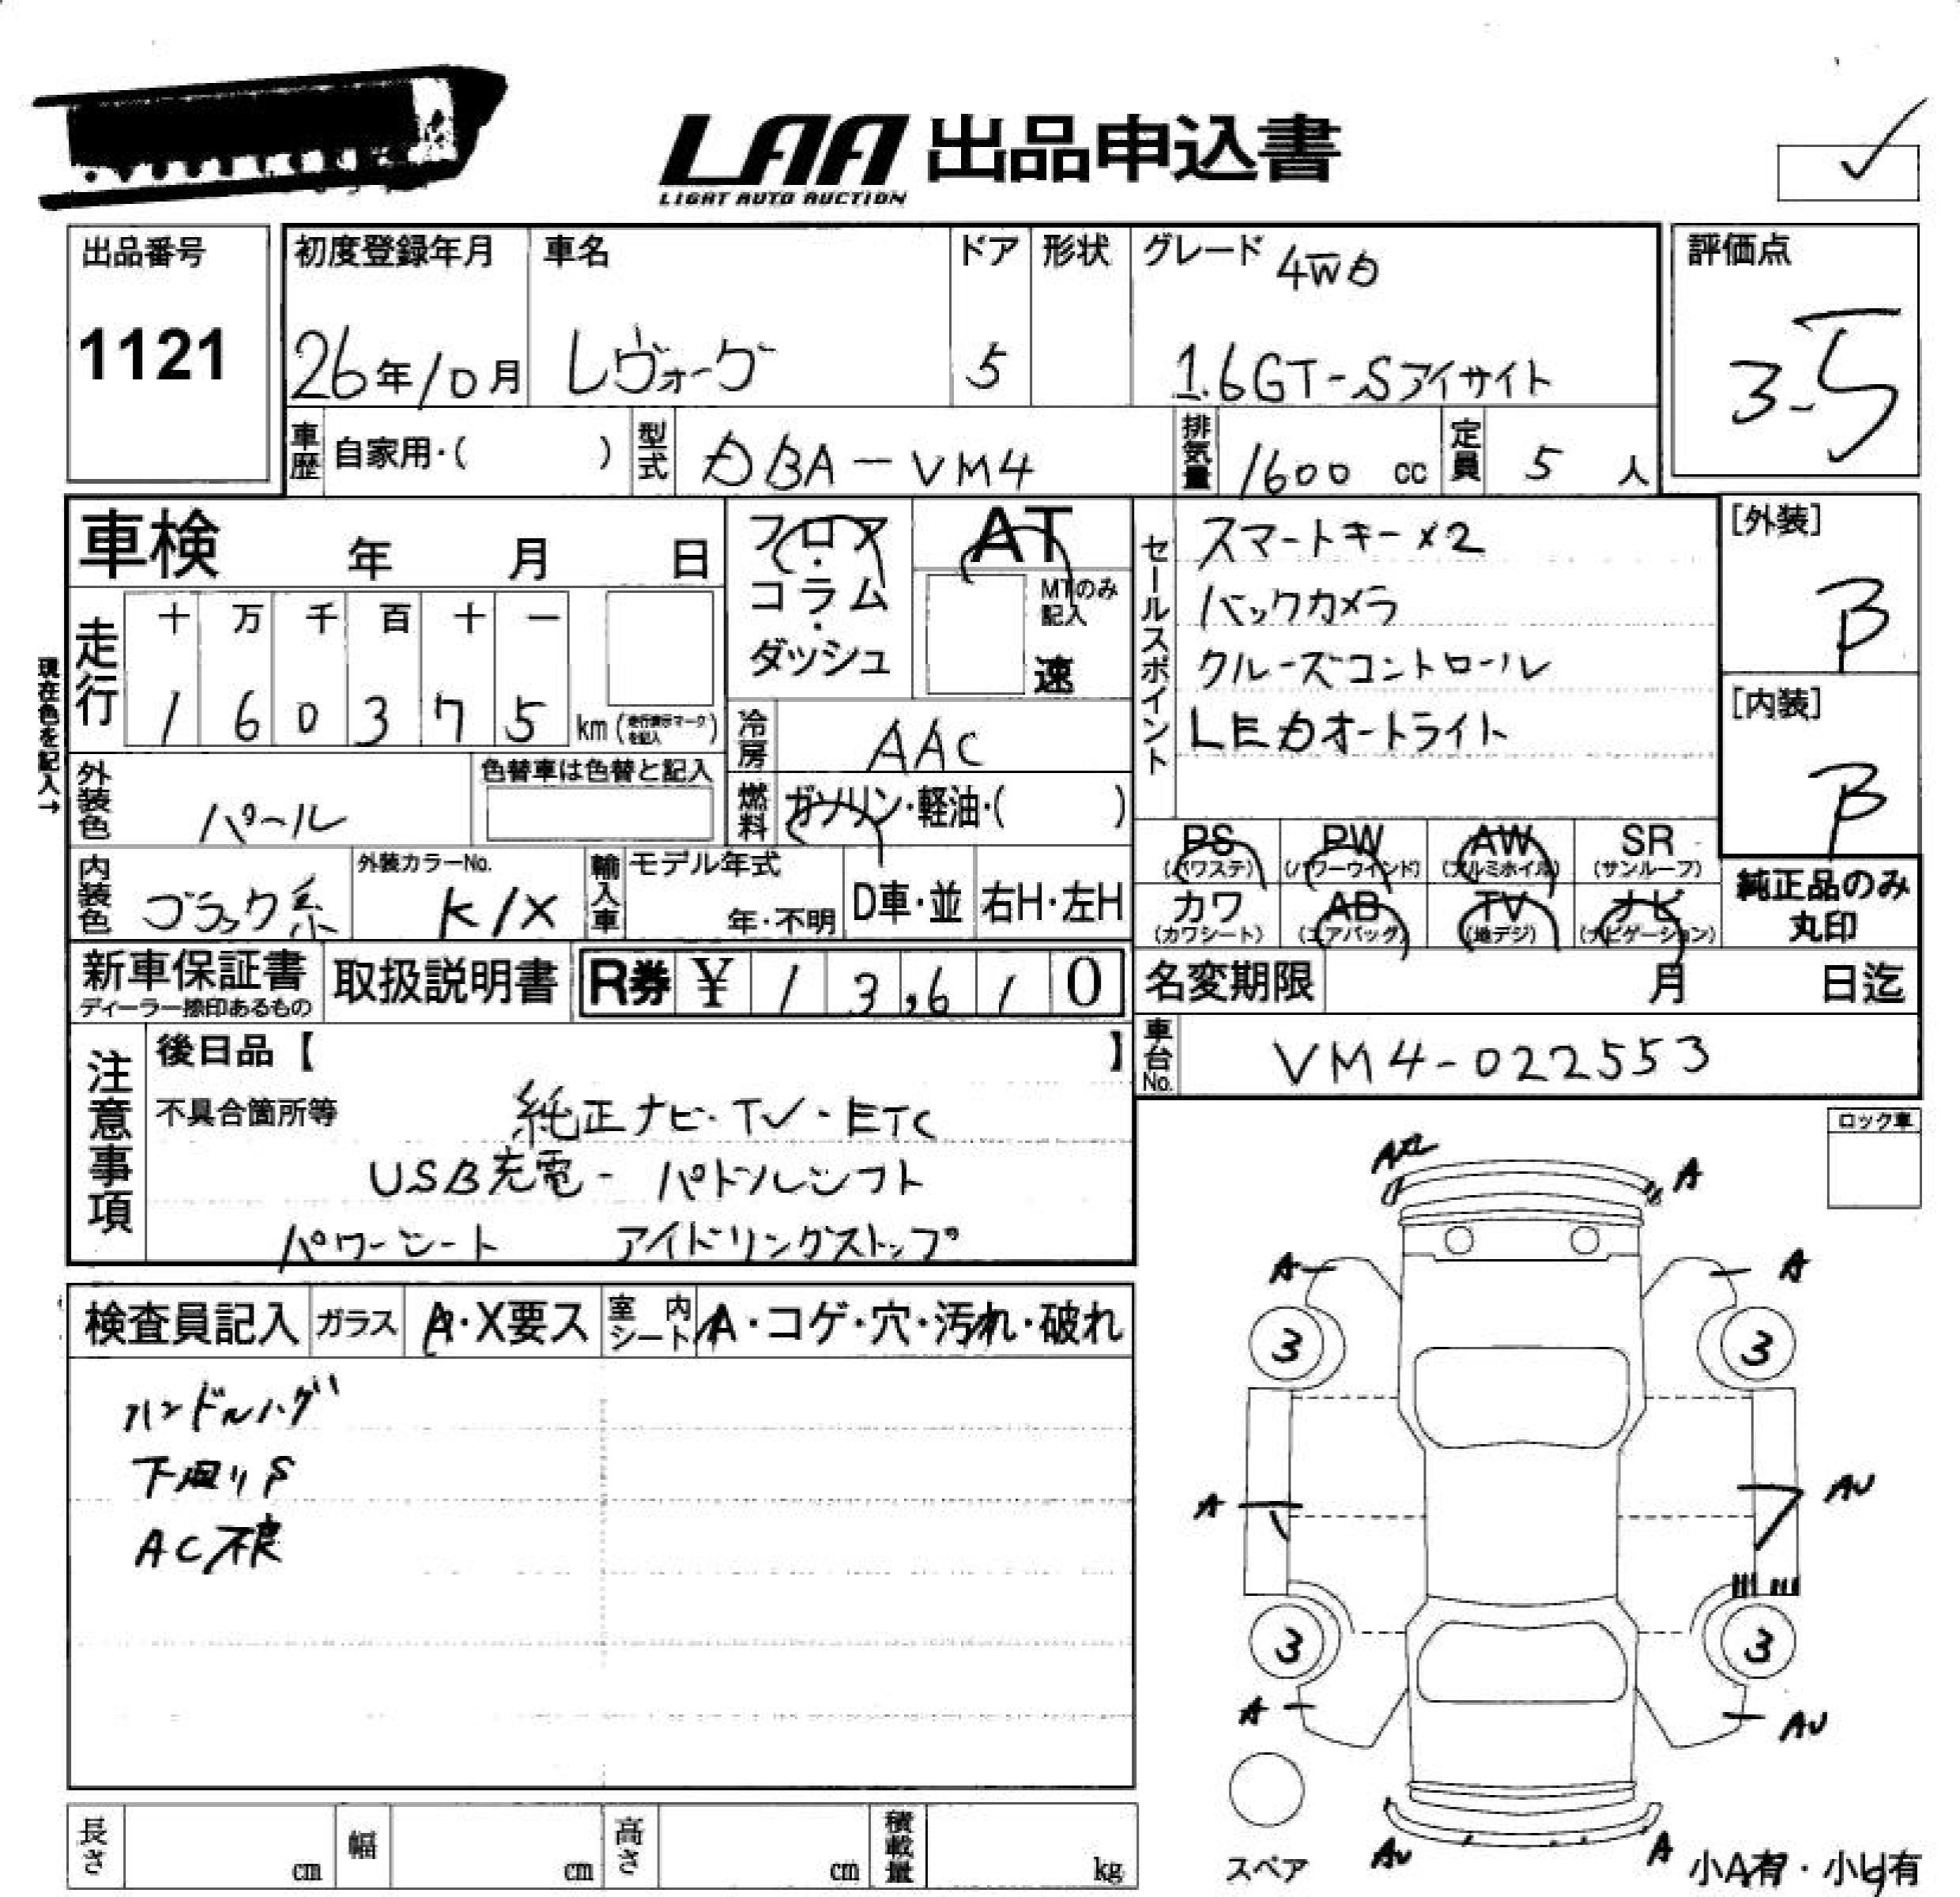 LAA 出品申込書
LIGHT AUTO AUCTION
出品番号
1121
初度登録年月
26年10月
車名
レヴォーグ
ドア
5
形状
グレード 4WD
1.6GT-Sアイサイト
評価点
3.5
車歴
自家用・( )
型式
DBA-VM4
排気量
1600 cc
定員
5 人
車検 年 月 日
フロア・コラム・ダッシュ
AT
MTのみ記入
速
現在色を記入→
走行
十 万 千 百 十 一
1 6 0 3 7 5 km (走行表示マークを記入)
冷房
AAC
燃料
ガソリン・軽油・( )
セールスポイント
スマートキー×2
バックカメラ
クルーズコントロール
LEDオートライト
[外装]
B
[内装]
B
外装色
パール
色替車は色替と記入
内装色
ブラック系
外装カラーNo.
K1X
輸入車
モデル年式
年・不明
D車・並
右H・左H
PS (パワステ)
PW (パワーウインド)
AW (アルミホイル)
SR (サンルーフ)
カワ (カワシート)
AB (エアバッグ)
TV (地デジ)
ナビ (ナビゲーション)
純正品のみ丸印
新車保証書
ディーラー捺印あるもの
取扱説明書
R券 ¥ 13,610
名変期限 月 日迄
車台No.
VM4-022553
注意事項
後日品【 】
不具合箇所等
純正ナビ・TV・ETC
USB充電- パドルシフト
パワーシート アイドリングストップ
ロック車
検査員記入
ガラス
A・X要ス
室内シート
A・コゲ・穴・汚れ・破れ
ハンドルハゲ
下廻りS
AC不良
A
A
A
3
3
A
AU
3
3
A
AU
スペア
AU
A
小A有・小U有
長さ cm
幅 cm
高さ cm
積載量 kg